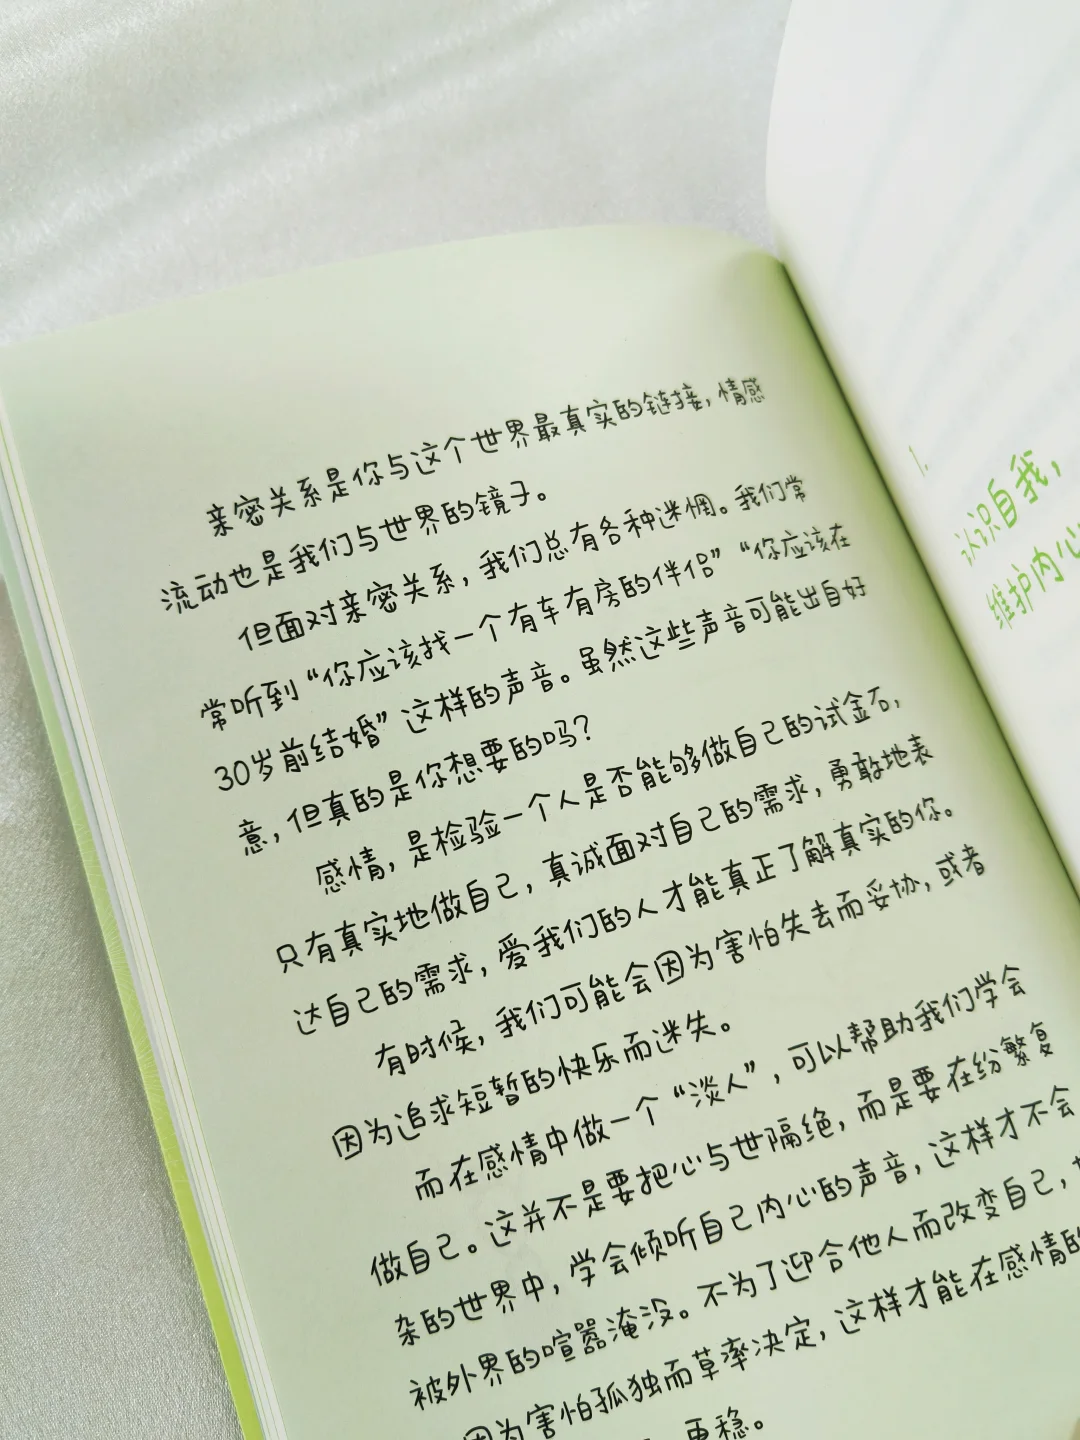 亲密关系是你与这个世界最真实的链接，情感
流动也是我们与世界的镜子。
但面对亲密关系，我们总有各种迷惘。我们常
常听到“你应该找一个有车有房的伴侣”“你应该在
30岁前结婚”这样的声音。虽然这些声音可能出自好
意，但真的是你想要的吗？
感情，是检验一个人是否能够做自己的试金石，
只有真实地做自己，真诚面对自己的需求，勇敢地表
达自己的需求，爱我们的人才能真正了解真实的你。
有时候，我们可能会因为害怕失去而妥协，或者
因为追求短暂的快乐而迷失。
而在感情中做一个“淡人”，可以帮助我们学会
做自己。这并不是要把心与世隔绝，而是要在纷繁复
杂的世界中，学会倾听自己内心的声音，这样才不会
被外界的喧嚣淹没。不为了迎合他人而改变自己，
因为害怕孤独而草率决定，这样才能在感情的
更稳。
1.
认识自我，
维护内心